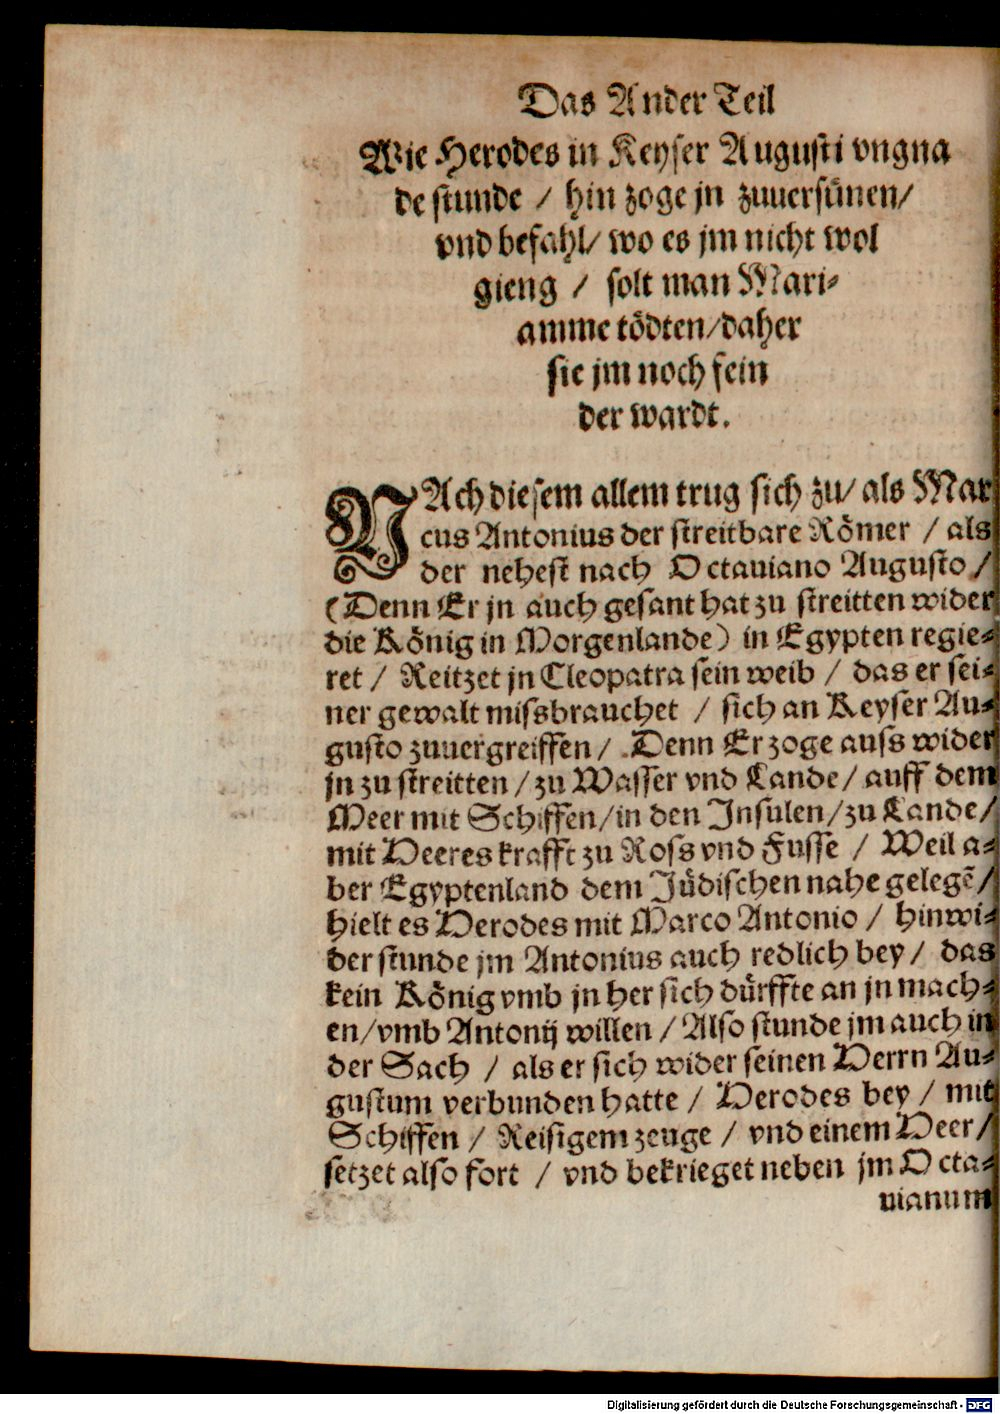 Das Ander Teil
Wie Herodes in Keyser Augusti vngna
de stunde / hin zoge jn zuuersünen/
vnd befahl/ wo es jm nicht wol
gieng / solt man Mari-
amme tödten/daher
sie jm noch fein
der wardt.
NAch diesem allem trug sich zu/ als Mar
cus Antonius der streitbare Römer / als
der nehest nach Octauiano Augusto /
(Denn Er jn auch gesant hat zu streitten wider
die König in Morgenlande) in Egypten regie-
ret / Reitzet jn Cleopatra sein weib / das er sei-
ner gewalt missbrauchet / sich an Keyser Au-
gusto zuuergreiffen / Denn Er zoge auss wider
jn zu streitten / zu Wasser vnd Lande/ auff dem
Meer mit Schiffen/in den Insulen/zu Lande/
mit Heeres krafft zu Ross vnd Fusse / Weil a-
ber Egyptenland dem Jüdischen nahe gelegē/
hielt es Herodes mit Marco Antonio / hinwi-
der stunde jm Antonius auch redlich bey / das
kein König vmb jn her sich dürffte an jn mach-
en/vmb Antonij willen / Also stunde jm auch in
der Sach / als er sich wider seinen Herrn Au-
gustum verbunden hatte / Herodes bey / mit
Schiffen / Reisigem zeuge / vnd einem Heer/
setzet also fort / vnd bekrieget neben jm Octa-
uianum
Digitalisierung gefördert durch die Deutsche Forschungsgemeinschaft - DFG